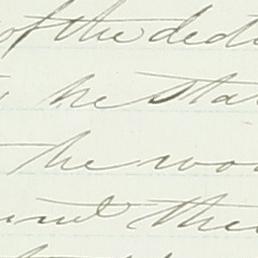 of the dedi
he sta
the wo
and the